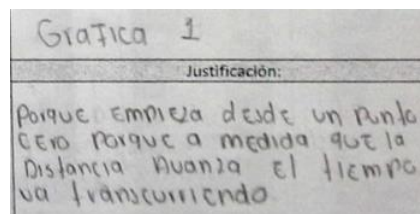 Grafica 1
Justificación:
Porque Empieza desde un Punto
cero Porque a medida que la
Distancia Avanza El tiempo
va transcurriendo